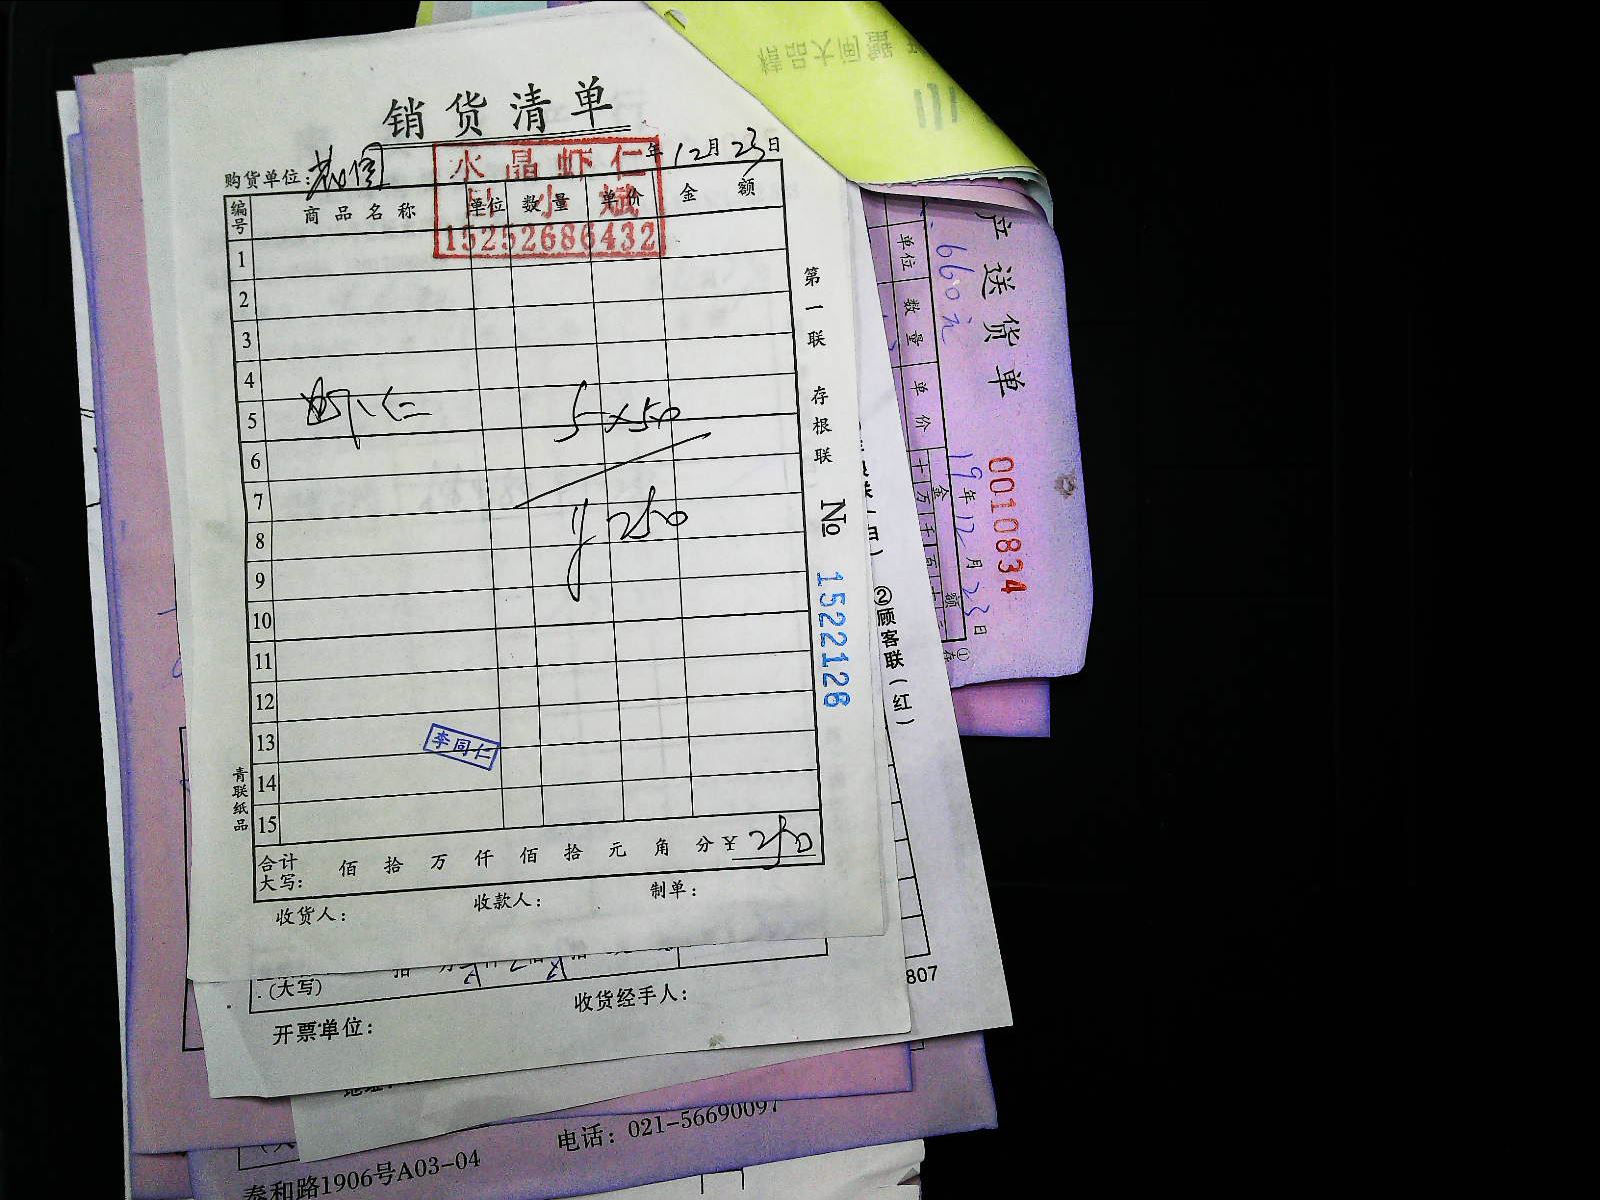 销货清单
购货单位:
年 12月 23日
水晶虾仁
15252686432
编号 商品名称 单位 数量 单价 金额
1
2
3
4
5 虾仁 5×50
6
7
8 ¥250
9
10
11
12
13
14
15
李同仁
合计大写: 佰 拾 万 仟 佰 拾 元 角 分 ¥ 250
收货人: 收款人: 制单:
第一联 存根联
№ 1522126
青联纸品
产送货单
0010834
660元
19年12月23日
单位 数量 单价 金额
十万千百十
②顾客联(红)
807
(大写)
收货经手人:
开票单位:
电话: 021-56690097
泰和路1906号A03-04